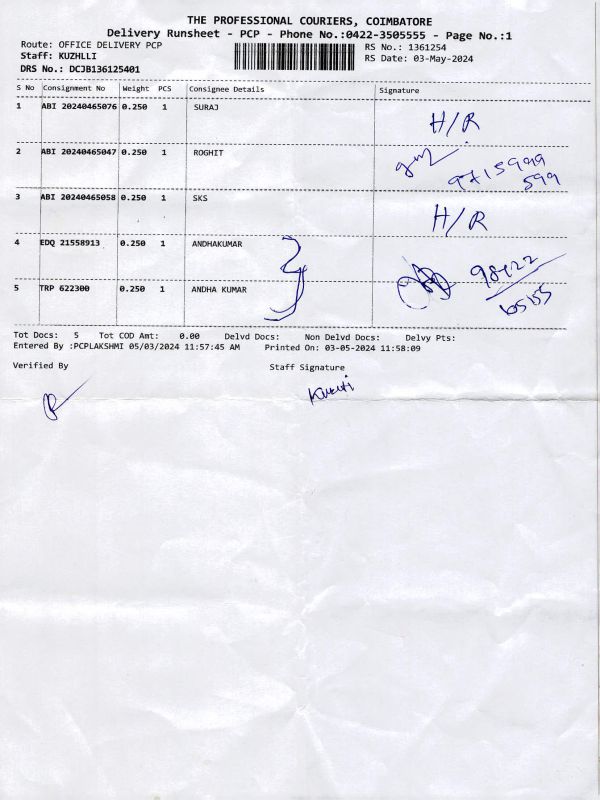 THE PROFESSIONAL COURIERS, COIMBATORE
Delivery Runsheet - PCP - Phone No.:0422-3505555 - Page No.:1
Route: OFFICE DELIVERY PCP
RS No.: 1361254
Staff: KUZHLLI
RS Date: 03-May-2024
DRS No.: DCJB136125401
S No Consignment No Weight PCS Consignee Details Signature
1 ABI 20240465076 0.250 1 SURAJ H/R
2 ABI 20240465047 0.250 1 ROGHIT 9715999
599
3 ABI 20240465058 0.250 1 SKS H/R
4 EDQ 21558913 0.250 1 ANDHAKUMAR 98422
5 TRP 622300 0.250 1 ANDHA KUMAR 65155
Tot Docs: 5 Tot COD Amt: 0.00 Delvd Docs: Non Delvd Docs: Delvy Pts:
Entered By :PCPLAKSHMI 05/03/2024 11:57:45 AM Printed On: 03-05-2024 11:58:09
Verified By Staff Signature